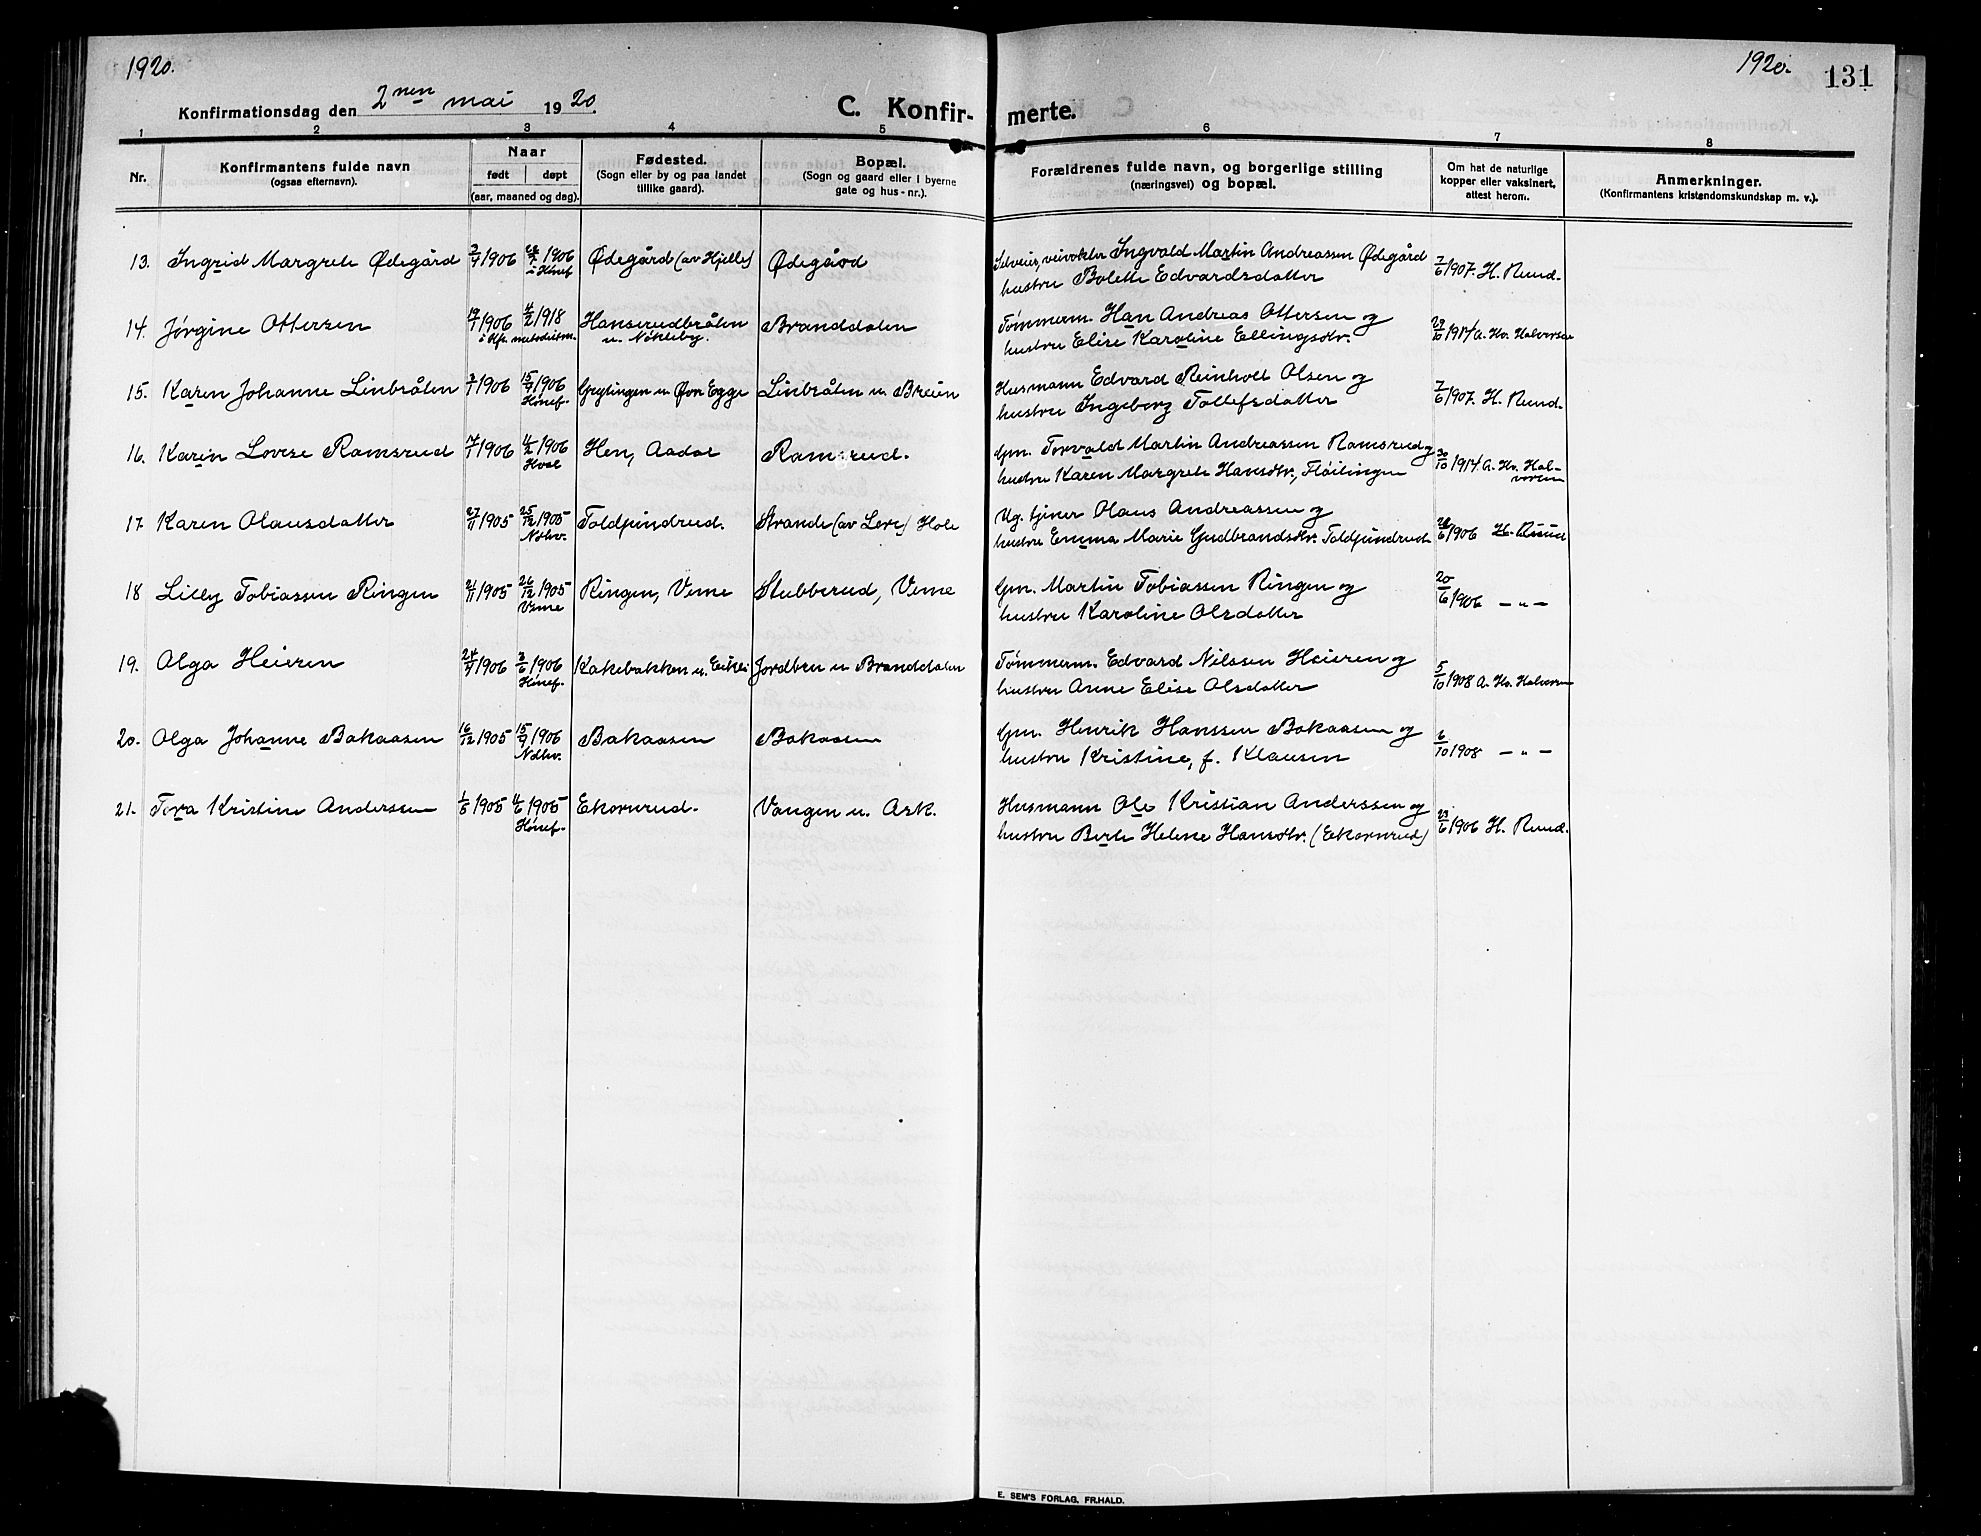 1920.
1920.
131
Konfirmationsdag den 2nen mai 1920.
C. Konfir- merte.
1 2 3 4 5 6 7 8
Nr.
Konfirmantens fulde navn
(ogsaa efternavn).
Naar
født døpt
(aar, maaned og dag).
Fødested.
(Sogn eller by og paa landet
tillike gaard).
Bopæl.
(Sogn og gaard eller i byerne
gate og hus-nr.).
Forældrenes fulde navn, og borgerlige stilling
(næringsvei) og bopæl.
Om hat de naturlige
kopper eller vaksinert,
attest herom.
Anmerkninger.
(Konfirmantens kristendomskundskap m. v.).
13. Ingrid Margrete Ødegård 1906 1906 Ødegård (av Hjelle) Ødegård Selveier, veivokter Ingvald Martin Andreassen Ødegård 7/6 1907. H. Ruud.
i Hønef hustru Bolette Edvardsdatter
14. Jørgine Ottersen 1906 4/2 1918 Hanserudbråten Branddalen Tømmerm. Han Andreas Ottersen og 1914 A. Hv. Halvorsen
metodistm. u. Nøkleby. hustru Elise Karoline Ellingsdtr.
15. Karen Johanne Linbråten 1906 15/4 1906 u. Øvre Egge Linbråten u. Breien Husmann Edvard Reinholt Olsen og 7/6 1907. H. Ruud.
Hønef. hustru Ingeborg Tollefsdatter
16. Karin Lovise Ramsrud 17/1 1906 4/2 1906 Hen, Aadal Ramsrud. Gm. Torvald Martin Andreassen Ramsrud og 30/10 1914. A. Hv. Hal-
Hval hustru Karen Margrete Hansdtr., Fløitingen vorsen
17. Karen Olausdatter 27/11 1905 25/12 1905 Toldpundrud. Strande (av Lore) Hole Ug. tjener Olaus Andreassen og
Ndhv. hustru Emma Marie Gudbrandsdtr. Toldpundrud 1906 H. Ruud
18 Lilly Tobiassen Ringen 21/11 1905 26/12 1905 Ringen, Veme Stubberud, Veme Gm. Martin Tobiassen Ringen og 20/6 1906 — „ —
Veme hustru Karoline Olsdatter
19. Olga Heieren 24/4 1906 3/6 1906 Kakebakken u. Eikli Jordbru u. Branddalen Tømmerm. Edvard Nilssen Heieren og 5/10 1908 A. Hv. Halvorsen
Hønef. hustru Anne Elise Olsdatter
20. Olga Johanne Bakaasen 16/12 1905 15/4 1906 Bakaasen Bakaasen Gm. Henrik Hanssen Bakaasen og 6/10 1908 — „ —
Ndhv. hustru Kristine, f. Klausen
21. Tora Kristine Anderssen 1/5 1905 11/6 1905 Ekornrud. Vangen u. Ask. Husmann Ole Kristian Anderssen og 23/6 1906 H. Ruud.
Hønef. hustru Berte Helene Hansdtr. (Ekornrud)
E. SEM'S FORLAG, FR.HALD.